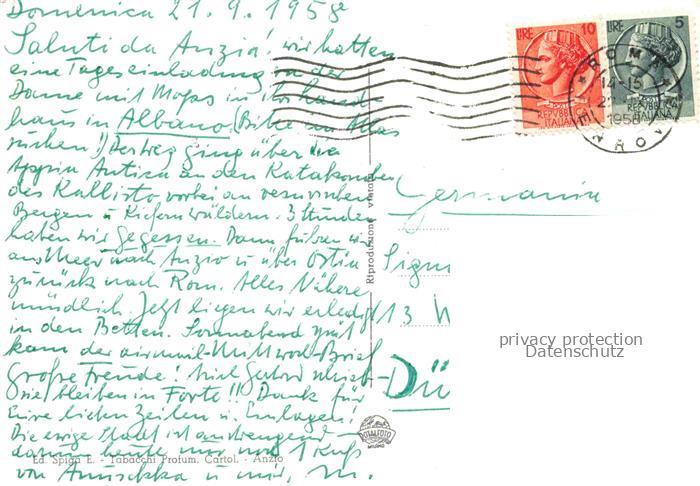 Domenica 21.9.1958
Saluti da Anzio! wir hatten
eine Tageseinladung zu der
Dame mit Mops in ihr Land-
haus in Albano. (Bitte im Atlas
suchen!) Der Weg ging über die
Appia Antica an den Katakomben
des Kallisto vorbei an
Bergen u Kiefernwäldern. 3 Stunden
haben wir gegessen. Dann fuhren wir
ans Meer nach Anzio u über Ostia
zurück nach Rom. Alles Nähere
mündlich. Jetzt liegen wir erledigt
in den Betten. Sonnabend
kam der airmail- -Brief
große Freude!
Sie bleiben in Forte!! Dank für
Eure lieben Zeilen u. Einlagen!
Die ewige Stadt ist anstrengend
darum heute nur 1 Kuß
von Anuschka u mir, M.
Ed. Spiga E. - Tabacchi Profum. Cartol. - Anzio
Riproduzione vietata
LIRE 10
REPUBBLICA
ITALIANA
LIRE 5
REPUBBLICA
ITALIANA
ROMA
14-15
1958
Germania
Sign
13
Dü
privacy protection
Datenschutz